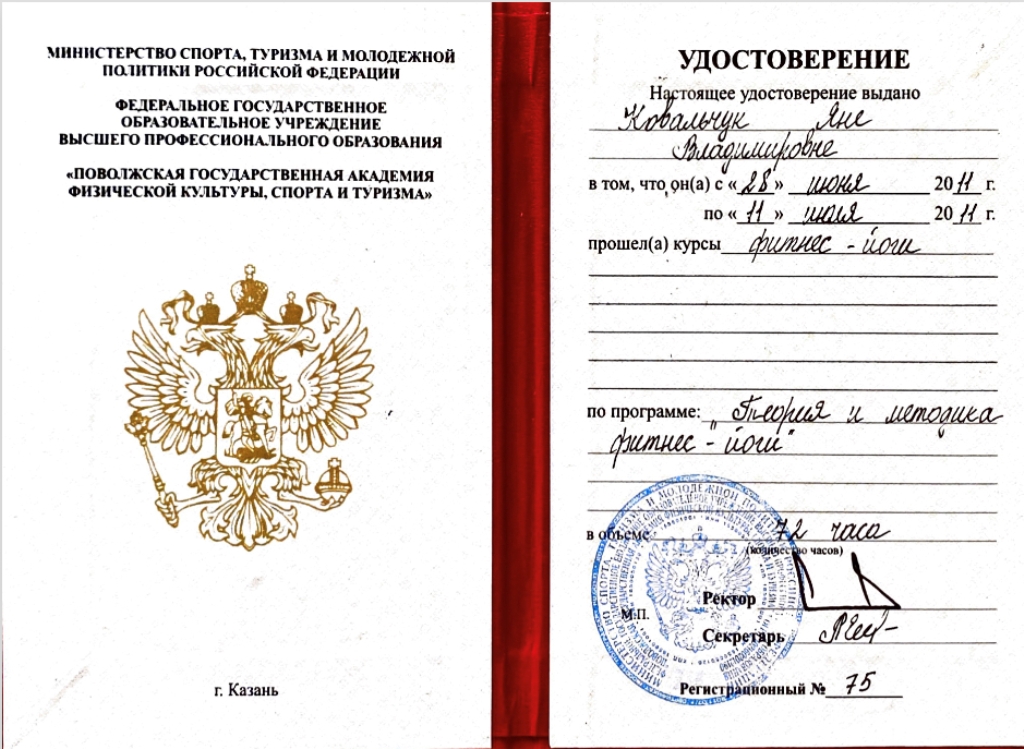 МИНИСТЕРСТВО СПОРТА, ТУРИЗМА И МОЛОДЕЖНОЙ
ПОЛИТИКИ РОССИЙСКОЙ ФЕДЕРАЦИИ
ФЕДЕРАЛЬНОЕ ГОСУДАРСТВЕННОЕ
ОБРАЗОВАТЕЛЬНОЕ УЧРЕЖДЕНИЕ
ВЫСШЕГО ПРОФЕССИОНАЛЬНОГО ОБРАЗОВАНИЯ
«ПОВОЛЖСКАЯ ГОСУДАРСТВЕННАЯ АКАДЕМИЯ
ФИЗИЧЕСКОЙ КУЛЬТУРЫ, СПОРТА И ТУРИЗМА»
г. Казань
УДОСТОВЕРЕНИЕ
Настоящее удостоверение выдано
Ковальчук Яне
Владимировне
в том, что он(а) с «28» июня 2011 г.
по «11» июля 2011 г.
прошел(а) курсы фитнес - йоги
по программе: „Теория и методика
фитнес - йоги"
в объеме: 72 часа
(количество часов)
Ректор
М.П.
Секретарь
Регистрационный № 75